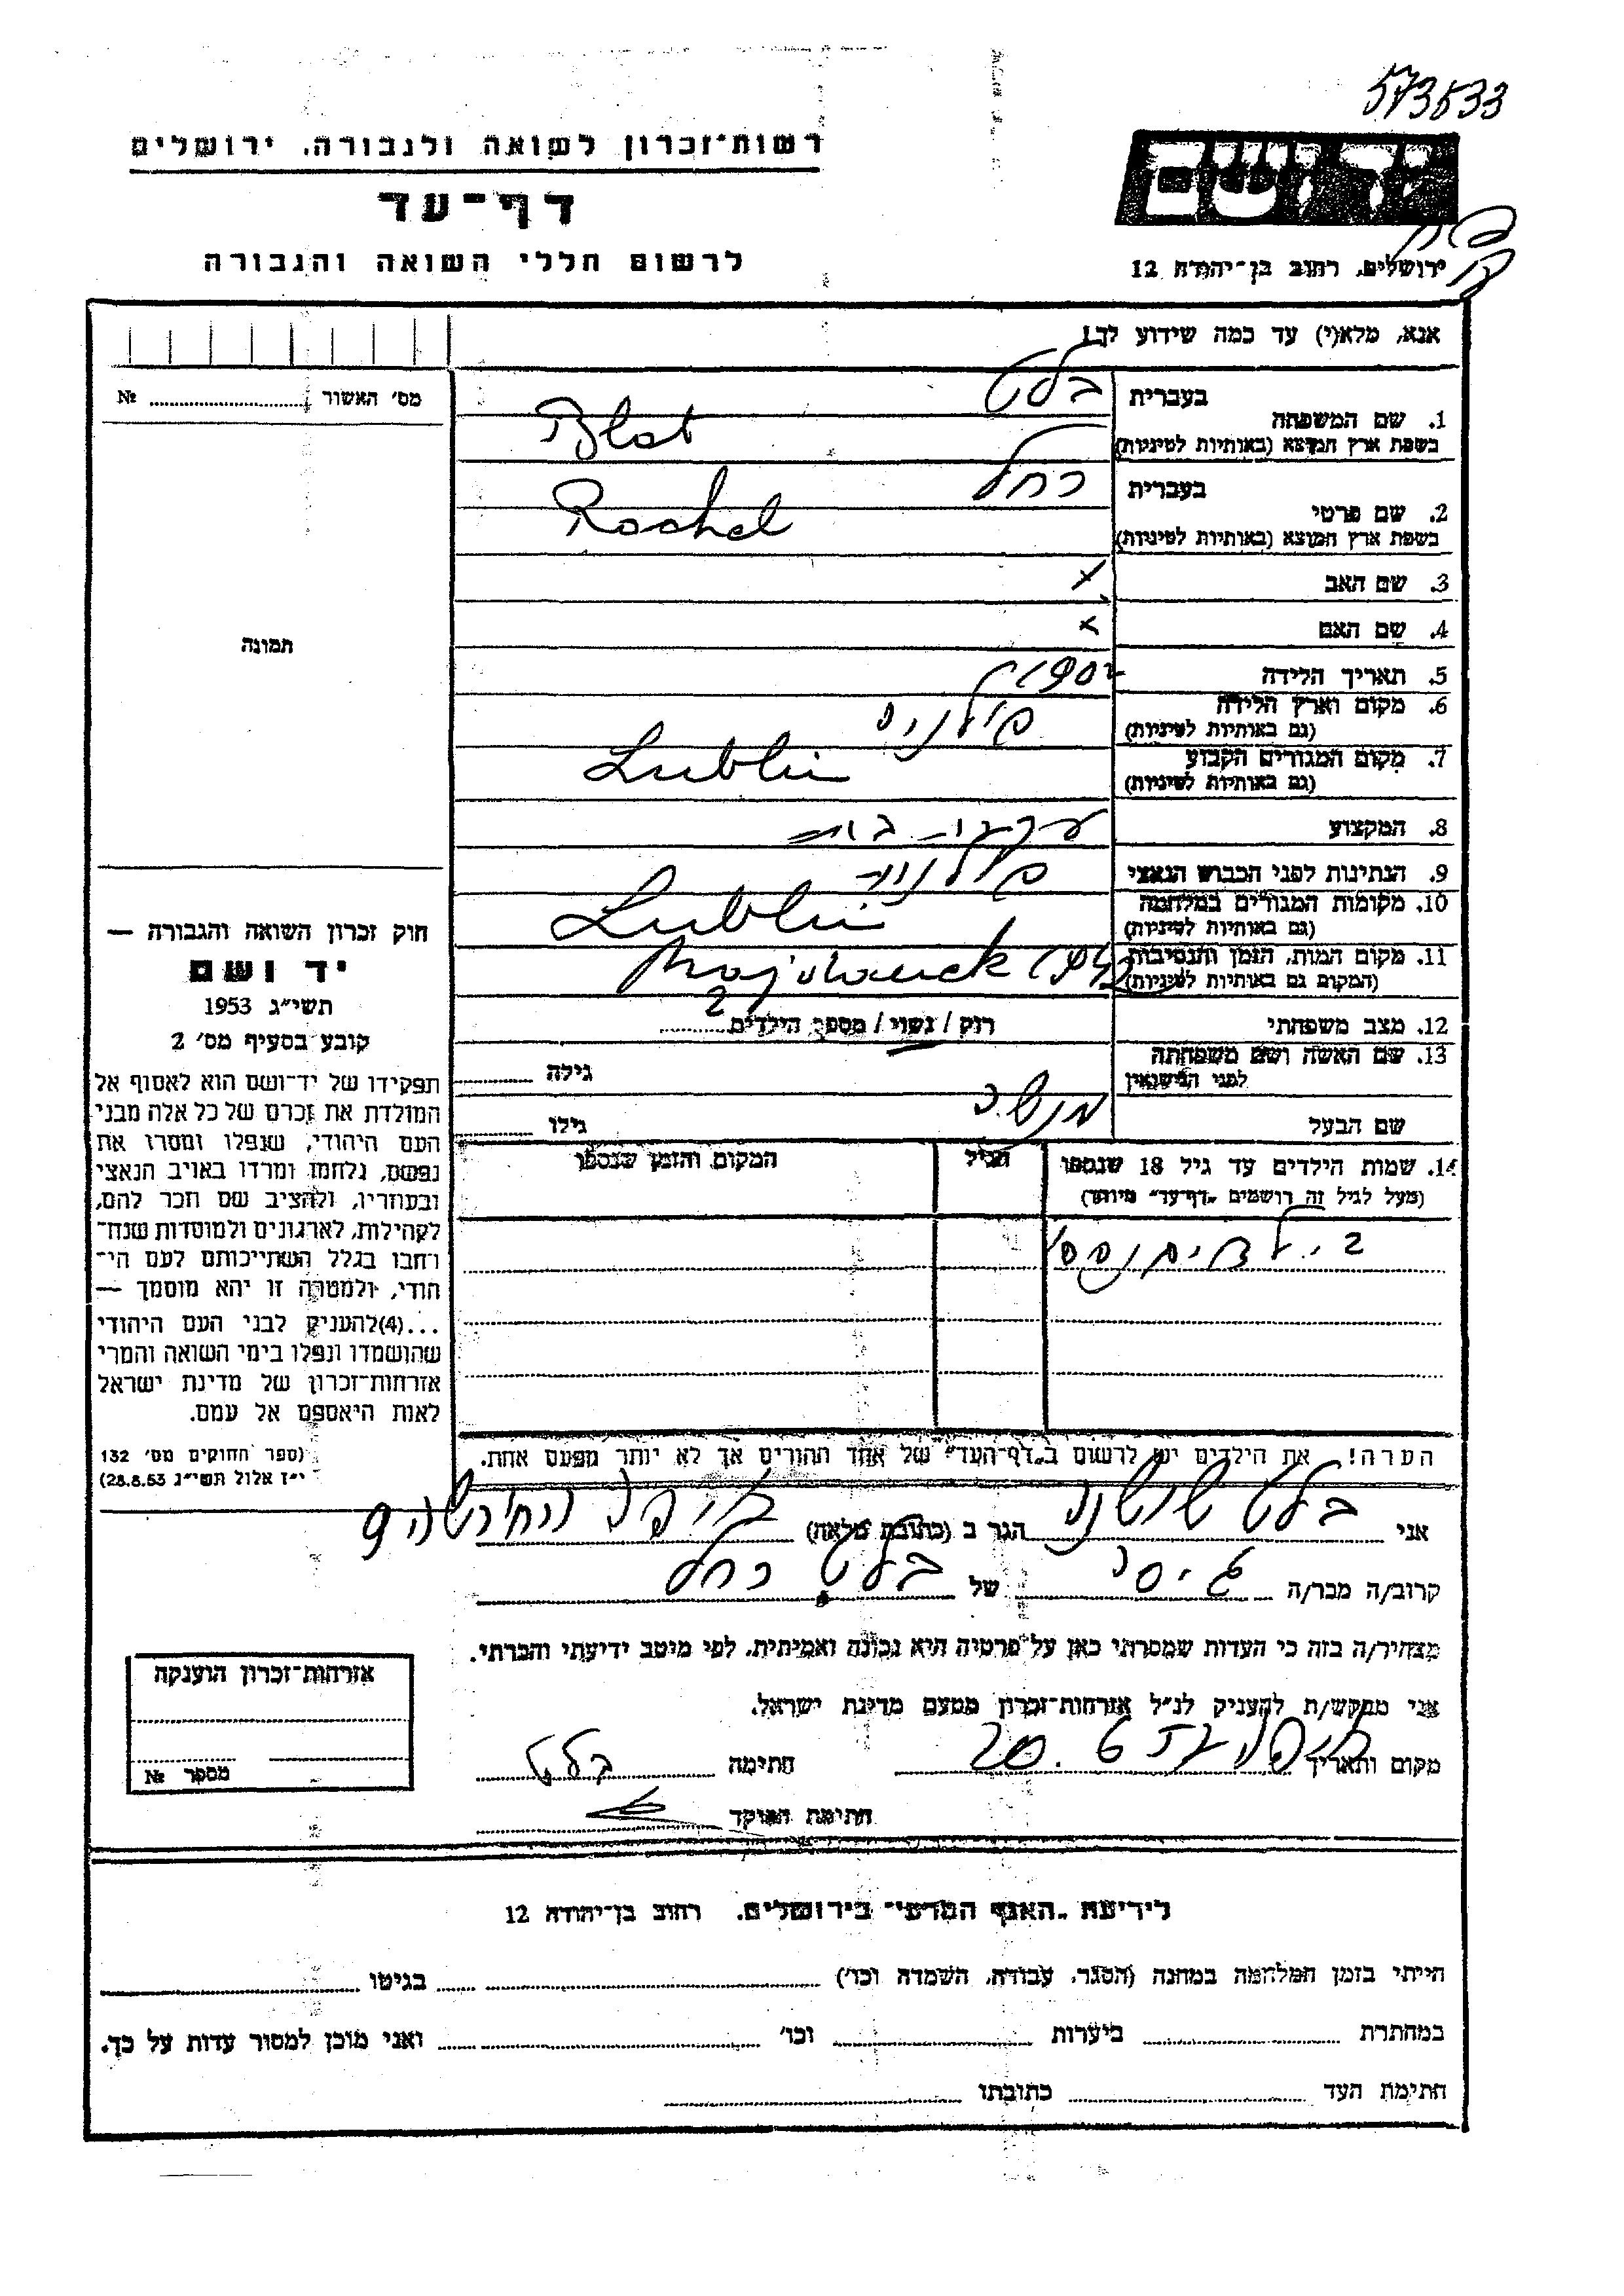 573533
רשות־זכרון לשואה ולגבורה, ירושלים
יד ושם
דף־עד
לרשום חללי השואה והגבורה
ירושלים, רחוב בן־יהודה 12
אנא, מלא(י) עד כמה שידוע לך!
מס' האשור № 
בעברית בלט
1. שם המשפחה
בשפת ארץ המוצא (באותיות לטיניות) Blat
בעברית רחל
2. שם פרטי
בשפת ארץ המוצא (באותיות לטיניות) Rachel
3. שם האב x
4. שם האם x
תמונה
5. תאריך הלידה
6. מקום וארץ הלידה פולניה
(גם באותיות לטיניות)
7. מקום המגורים הקבוע Lublin
(גם באותיות לטיניות)
8. המקצוע עקרת בית
9. הנתינות לפני הכבוש הנאצי פולנית
10. מקומות המגורים במלחמה Lublin
(גם באותיות לטיניות)
11. מקום המות, הזמן והנסיבות Majdaneck 1942
(המקום גם באותיות לטיניות)
12. מצב משפחתי רוק / נשוי / מספר הילדים 2
13. שם האשה ושם משפחתה
לפני הנישואין גילה
שם הבעל מנשה גילו
14. שמות הילדים עד גיל 18 שנספו הגיל המקום והזמן שנספו
(מעל לגיל זה רושמים "דף־עד" מיוחד)
2 ילדים נספו
חוק זכרון השואה והגבורה —
יד ושם
תשי"ג 1953
קובע בסעיף מס' 2
תפקידו של יד־ושם הוא לאסוף אל
המולדת את זכרם של כל אלה מבני
העם היהודי, שנפלו ומסרו את
נפשם, נלחמו ומרדו באויב הנאצי
ובעוזריו, ולהציב שם וזכר להם,
לקהילות, לארגונים ולמוסדות שנח־
רחבו בגלל השתייכותם לעם הי־
הודי, ולמטרה זו יהא מוסמך —
...(4)להעניק לבני העם היהודי
שהושמדו ונפלו בימי השואה והמרי
אזרחות־זכרון של מדינת ישראל
לאות היאספם אל עמם.
(ספר החוקים מס' 132
י"ז אלול תשי"ג 28.8.53)
הערה! את הילדים יש לרשום ב"דף־העד" של אחד ההורים אך לא יותר מפעם אחת.
אני בלט שושנה הגר ב (כתובת מלאה) חיפה
קרוב/ה מכר/ה גיסה של בלט רחל
מצהיר/ה בזה כי העדות שמסרתי כאן על פרטיה היא נכונה ואמיתית, לפי מיטב ידיעתי והכרתי.
אני מבקש/ת להעניק לנ"ל אזרחות־זכרון מטעם מדינת ישראל.
מקום ותאריך חיפה חתימה בלט
חתימת הפוקד
אזרחות־זכרון הוענקה
מספר №
לידיעת "האגף המדעי" בירושלים, רחוב בן־יהודה 12
הייתי בזמן המלחמה במחנה (הסגר, עבודה, השמדה וכו') בגיטו
במחתרת ביערות וכו' ואני מוכן למסור עדות על כך.
חתימת העד כתובתו